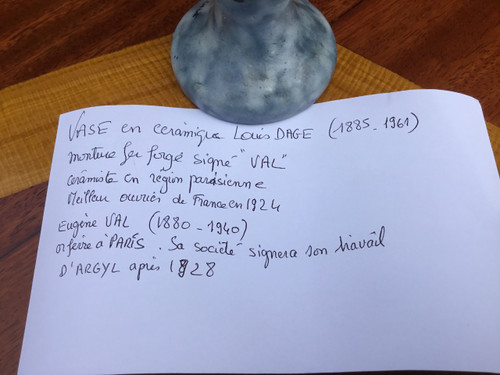 VASE en ceramique Louis DAGE (1885-1961)
monture fer forgé signé "VAL"
cerâmiste en région parisienne
Meilleur ouvrier de France en 1924
Eugène VAL (1880-1940)
orfèvre à PARIS. Sa société signera son travail
D'ARGYL après 1928